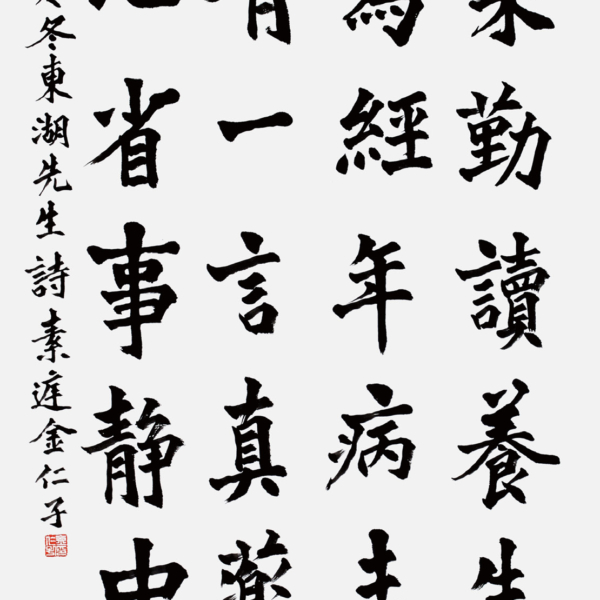 勤讀養生
為經年病
有一言真藥
省事静中
冬東湖先生詩素金仁子